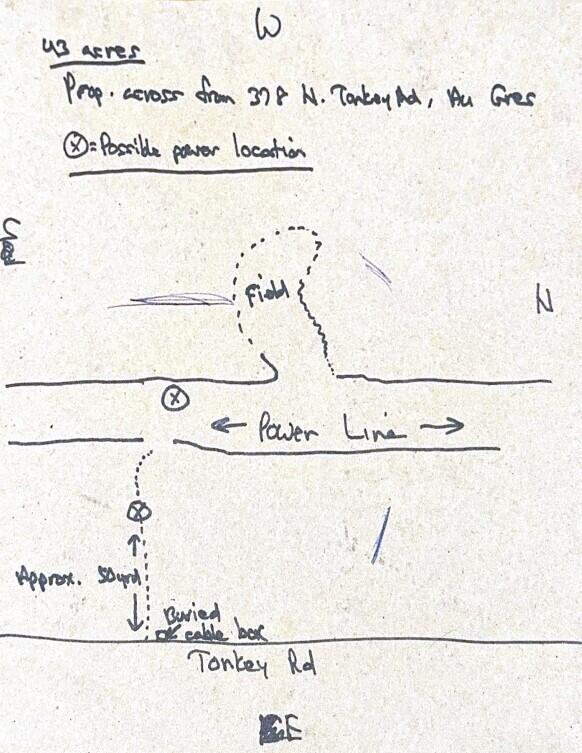 W
43 acres
Prop. across from 378 N. Tonkey Rd, Au Gres
ⓧ=Possible power location
S
Field
N
ⓧ
← Power Line →
ⓧ
Approx. 50yrd
Buried
cable box
Tonkey Rd
E